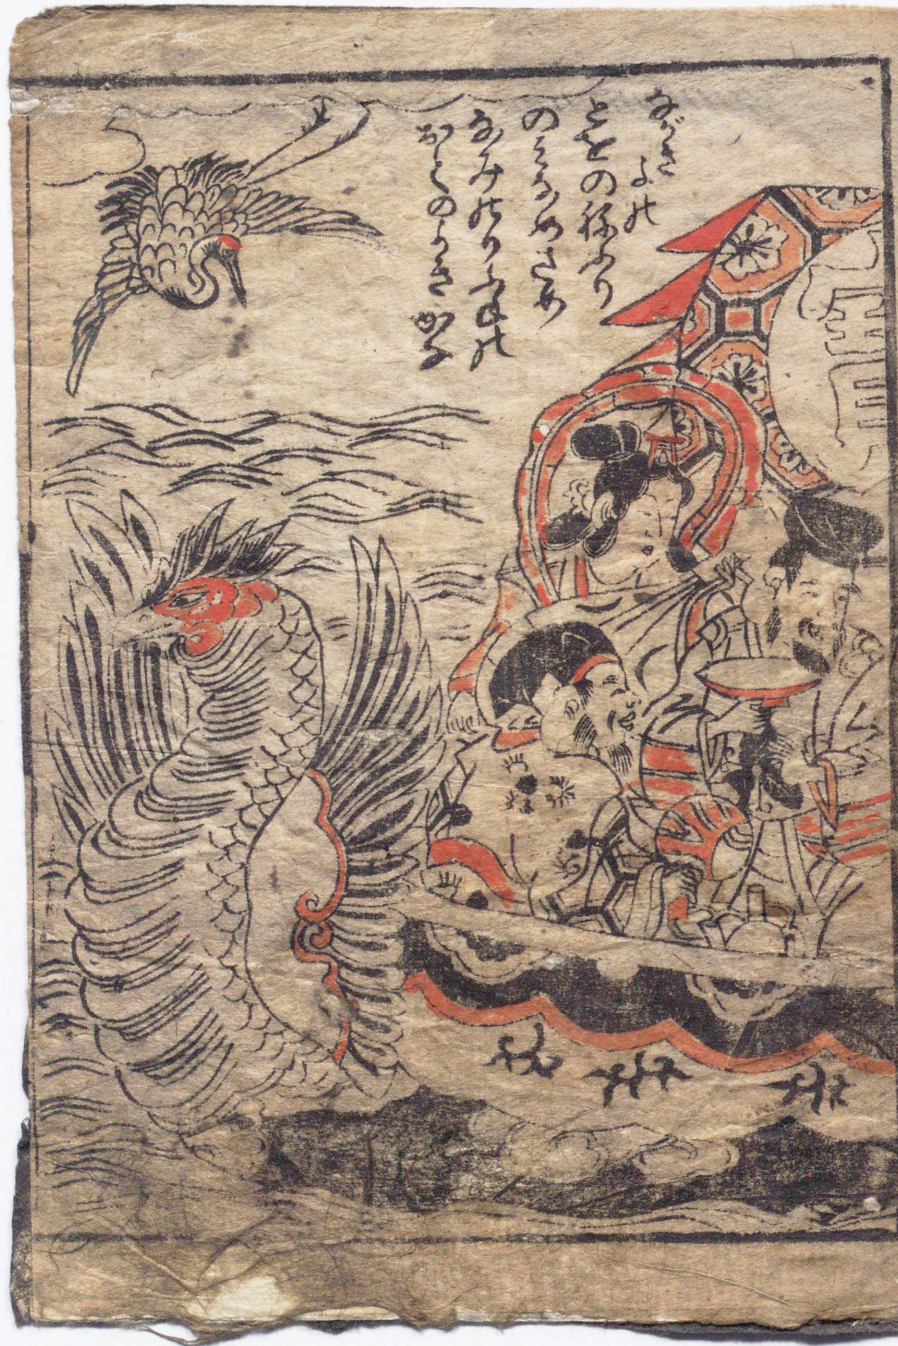 ながきよの
とをのねふり
のみなめさめ
なみのりふねの
おとのよきかな